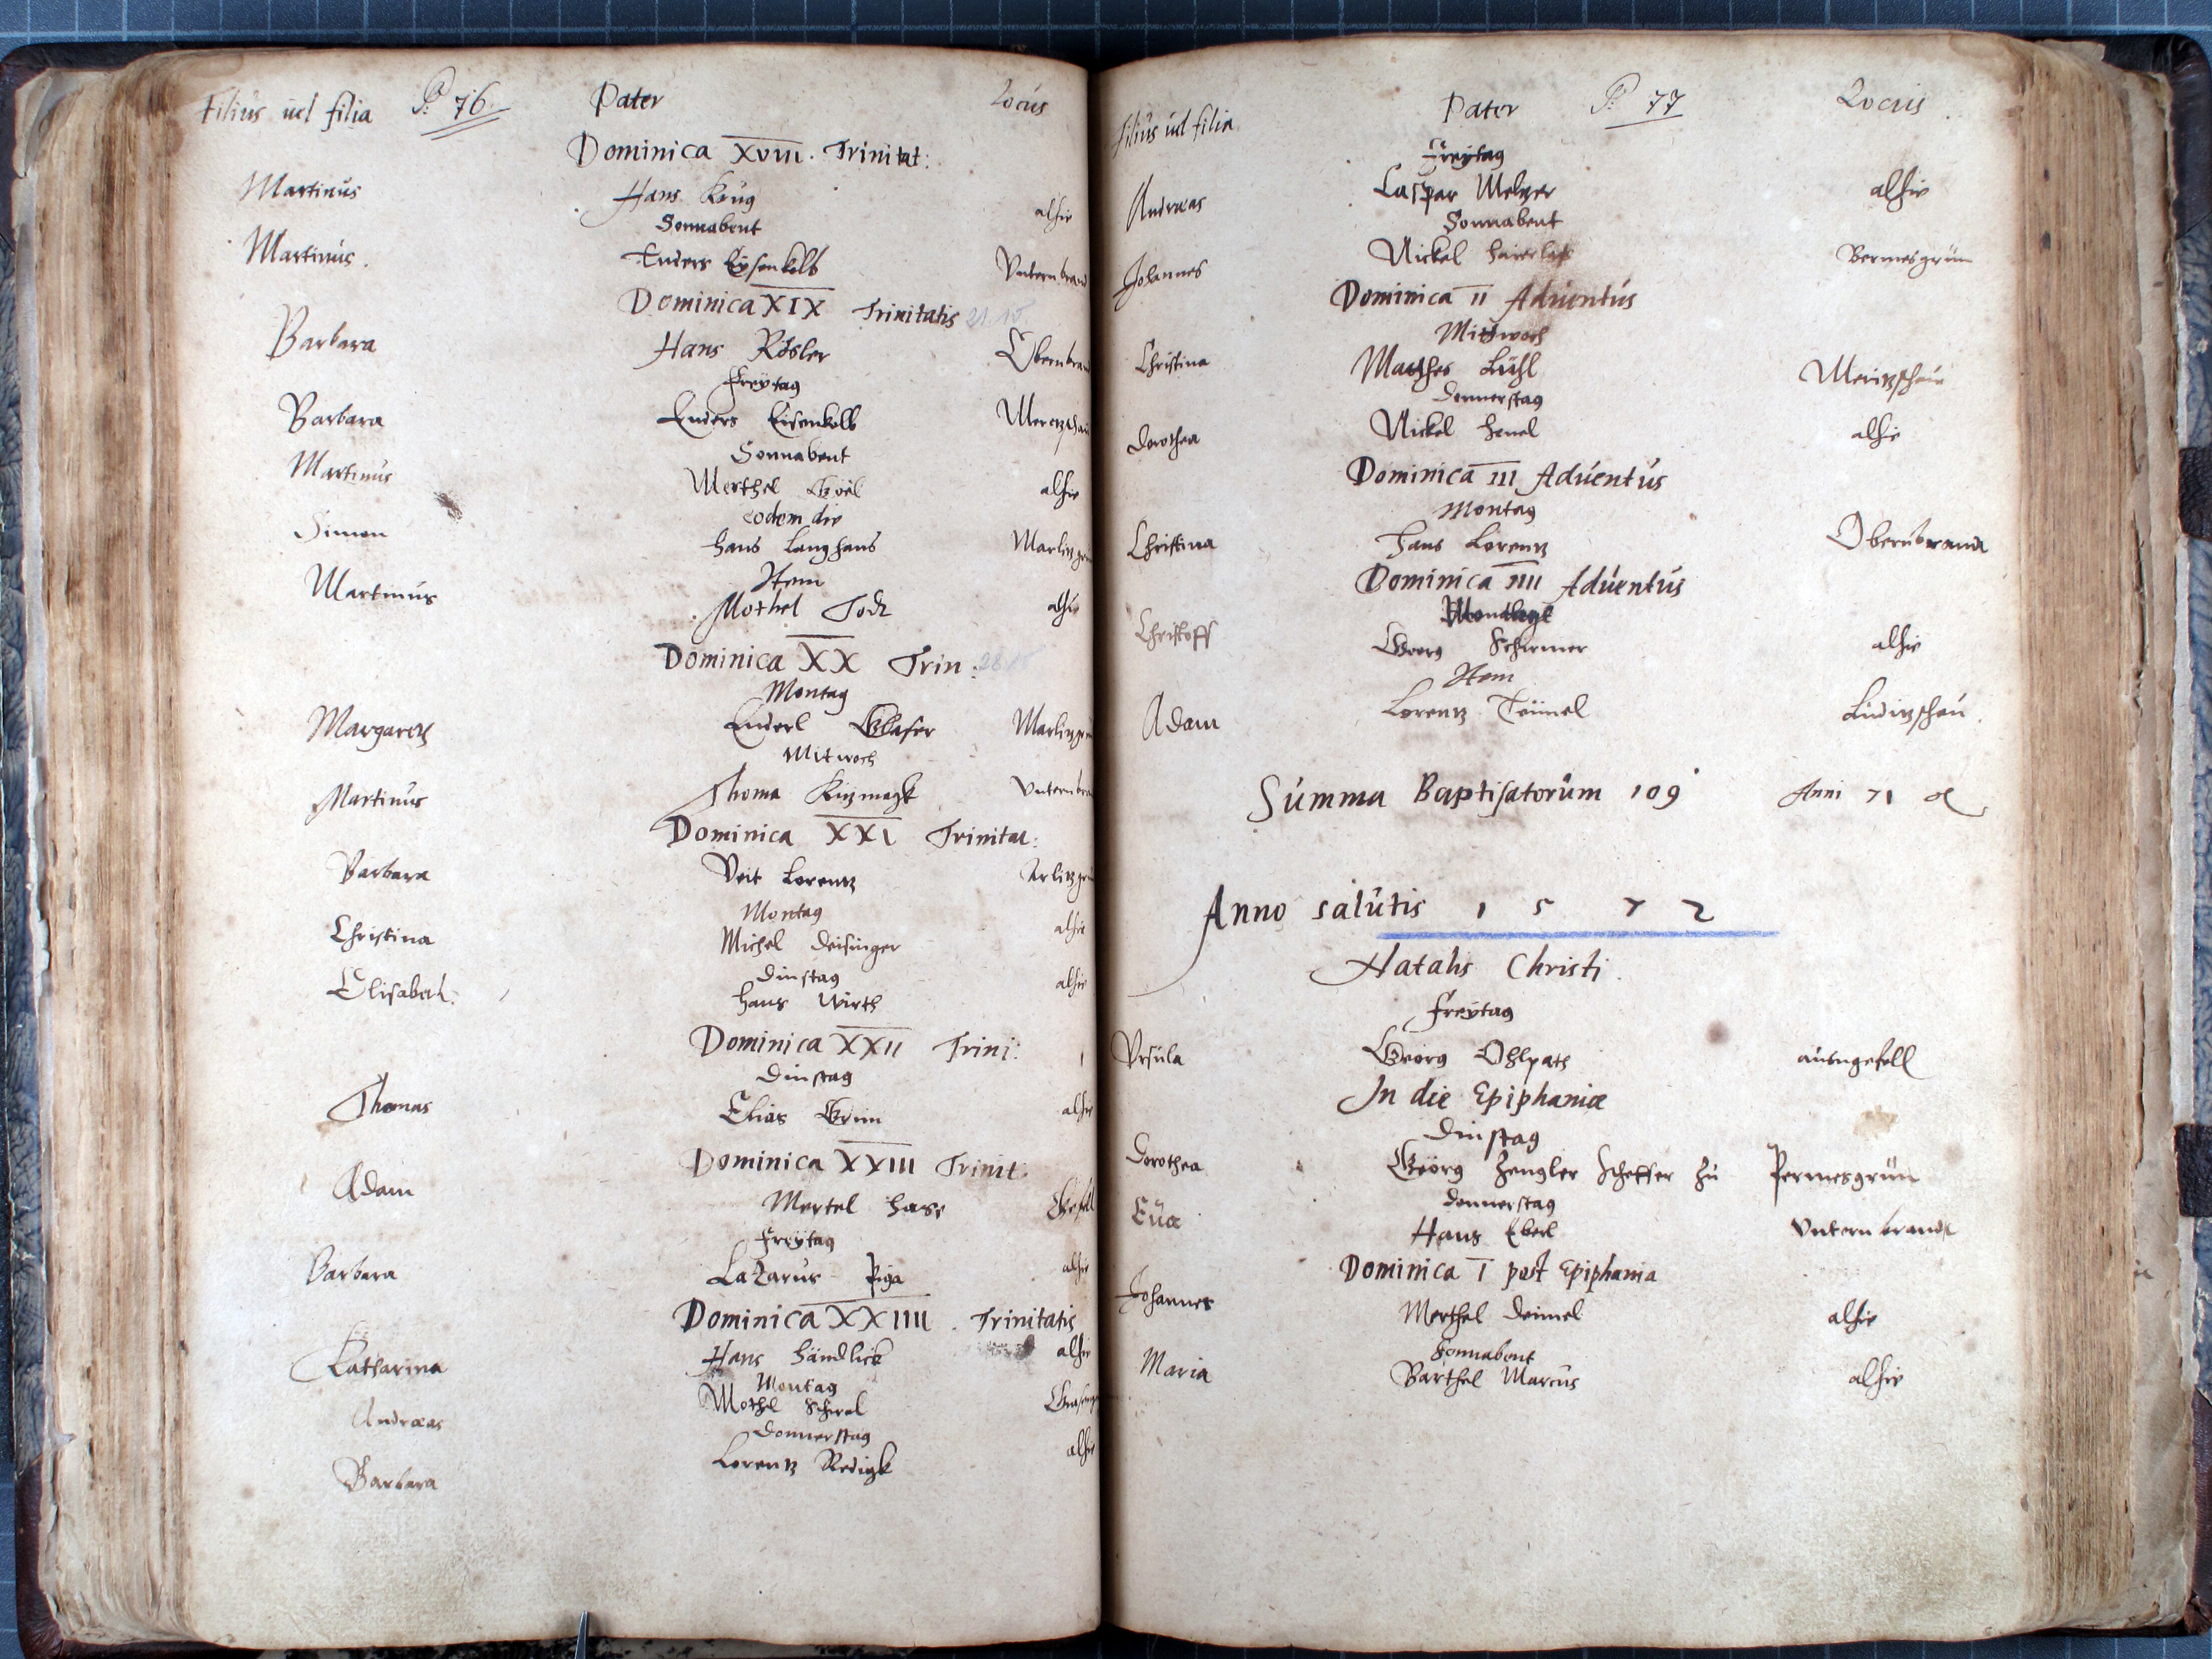 Filius uel filia P: 76. Pater Locus
Dominica XVIII. Trinitat:
Martinus Hans Krug alhie
Sonnabent
Martinus. Enders Eysenkolb Unternbrand
Dominica XIX Trinitatis 21.10.
Barbara Hans Rösler Obernbran
Freÿtag
Barbara Enders Eisenkolb
Sonnabent
Martinus Merthel alhie
eodem die
Simon Hans Langhans Marlitzgr
Item
Martinus Mothel alhie
Dominica XX Trin: 28.10
Montag
Margareth Enderl Glaser Marlitzgr
Mitwoch
Martinus Thoma Unternbra
Dominica XXI Trinitat:
Barbara Veit Lorentz Arlitzgr
Montag
Christina Michel Deisinger alhie
Dinstag
Elisabeth. Hans Wirth alhie
Dominica XXII Trini:
Dinstag
Thomas Elias Grim alhie
Dominica XXIII Trinit
Adam Mertel Hase Gefell
Freÿtag
Barbara Lazarus Piga alhie
Dominica XXIIII. Trinitatis
Katharina Hans Händlick alhie
Montag
Andraeas Mothel
Donnerstag
Barbara Lorentz Redigk alhie
Filius uel filia Pater P: 77 Locus
Freÿtag
Andraeas Caspar Meltzer alhie
Sonnabent
Johannes Nickel Bermesgrün
Dominica II Aduentus
Mittwoch
Christina Matthes
Donnerstag
Dorothea Nickel alhie
Dominica III Aduentus
Montag
Christina Hans Lorentz Obernbrand
Dominica IIII Aduentus
Christoff Georg Schirmer alhie
Item
Adam Lorentz
Summa Baptisatorum 109 Anni 71
Anno salutis 1572
Natalis Christi.
Freÿtag
Ursula Georg
In die Epiphaniae
Dinstag
Dorothea Georg zu Permesgrün
Donnerstag
Eua Hans Eberl Unternbrandt
Dominica I post Epiphania
Johannes Merthel Deimel alhie
Sonnabent
Maria Barthel Marcus alhie